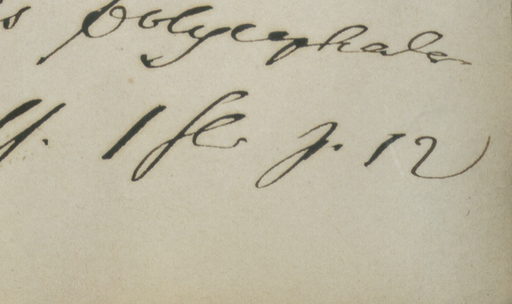 s polycephala
y. 1 fl. p. 12